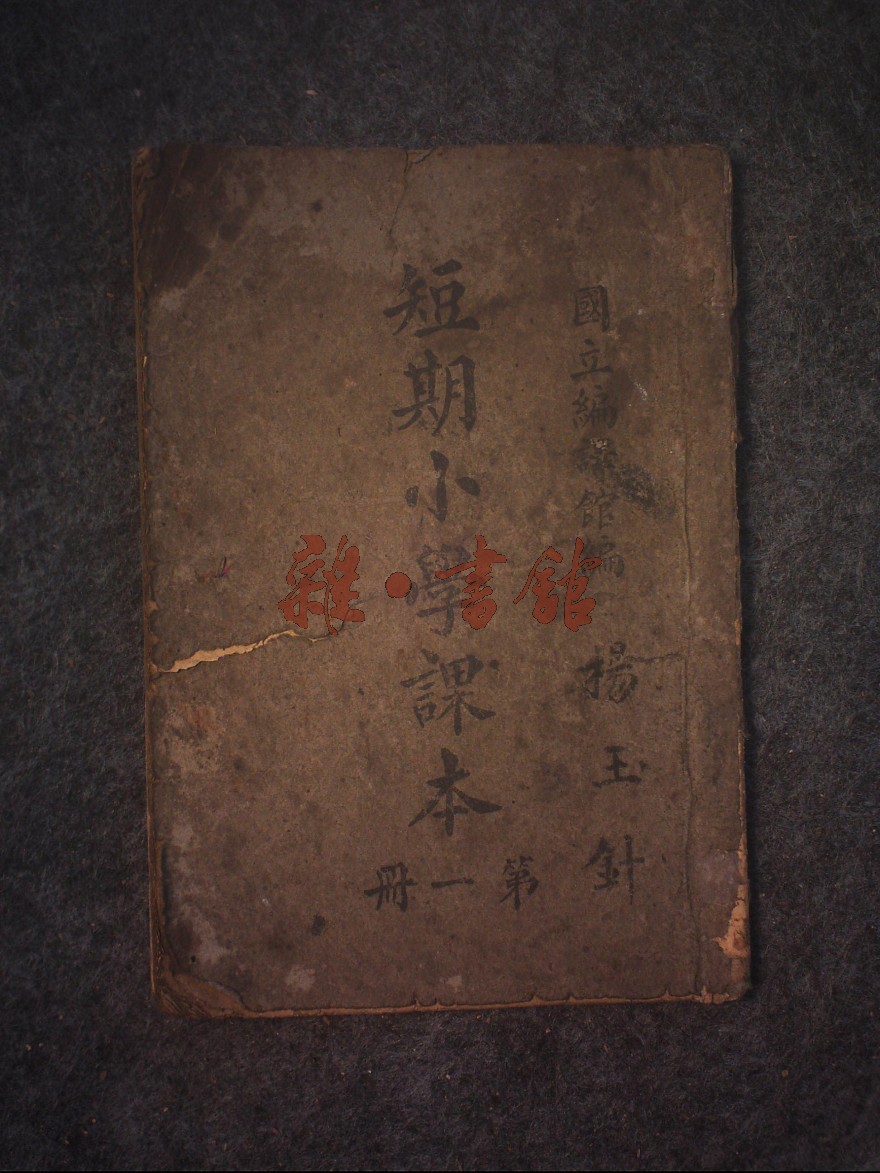 國立編譯館編
楊玉針
短期小學課本
第一冊
雜·書館